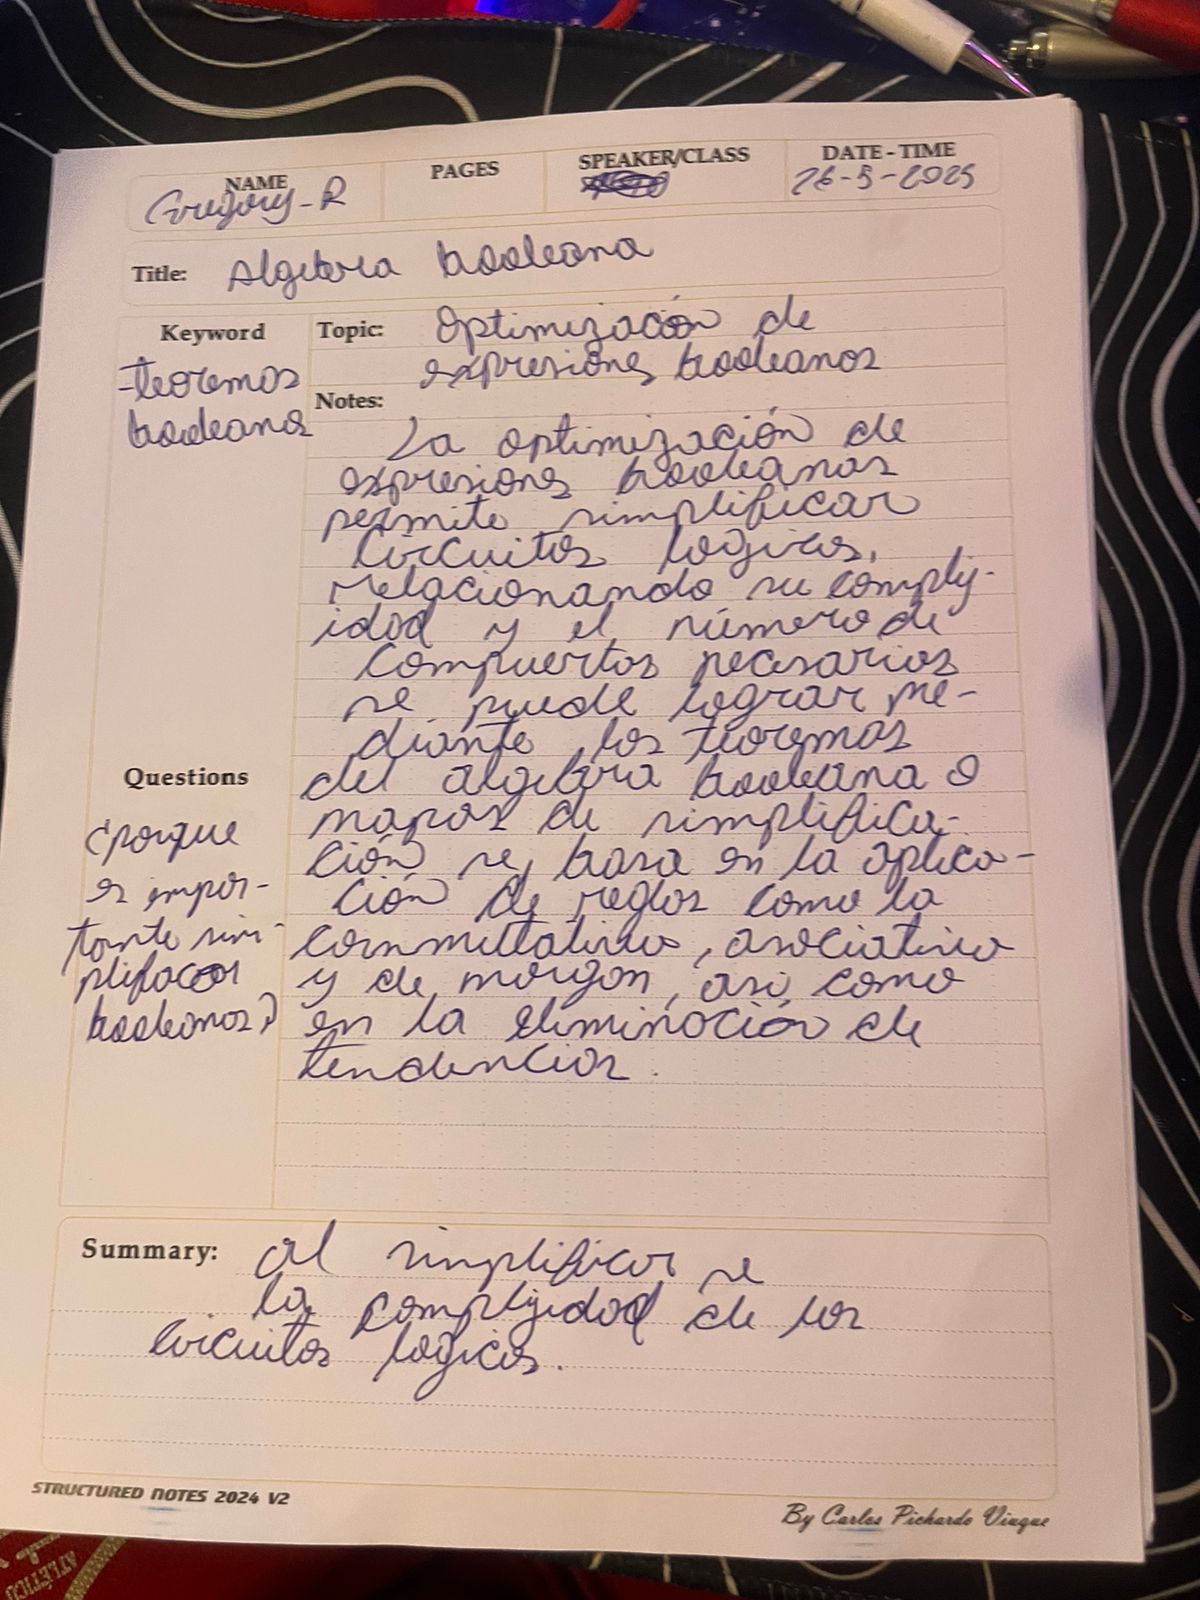 NAME
Gregory-R
PAGES
SPEAKER/CLASS
DATE-TIME
26-5-2025
Title: Algebra booleana
Keyword
-teoremas
booleanos
Topic: Optimización de
expresiones booleanos
Notes:
La optimización de
expresiones booleanas
permite simplificar
circuitos logicos,
relacionando su complej-
idad y el número de
compuertas necesarios
se puede lograr me-
diante los teoremas
del algebra booleana o
mapas de simplifica-
ción se basa en la aplica-
ción de reglas como la
conmutativa, asociativa
y de morgan, asi como
en la eliminación de
tendencias.
Questions
¿porque
es impor-
tante sim-
plificar
booleanos?
Summary: al simplificar se
la complejidad de los
circuitos logicos.
STRUCTURED NOTES 2024 V2
By Carlos Pichardo Viuque
ATLÉTICO